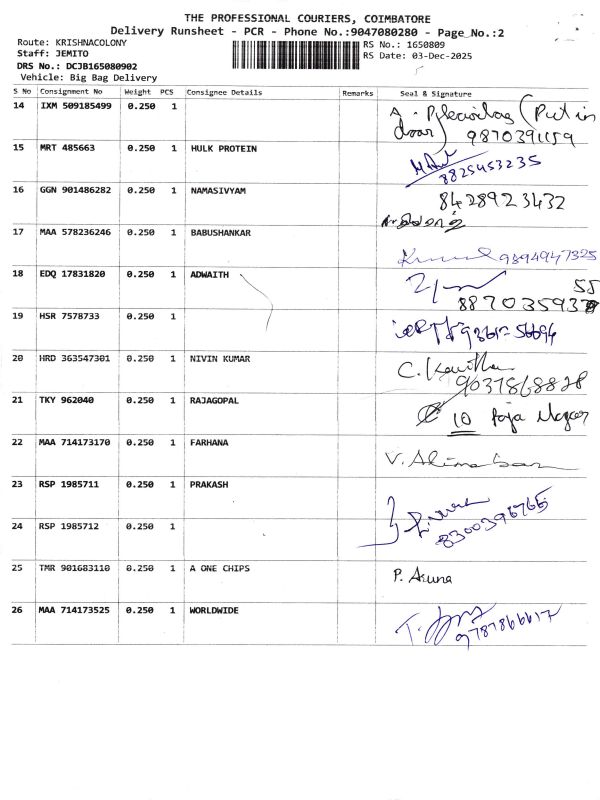 THE PROFESSIONAL COURIERS, COIMBATORE
Delivery Runsheet - PCR - Phone No.:9047080280 - Page_No.:2
Route: KRISHNACOLONY
RS No.: 1650809
Staff: JEMITO
RS Date: 03-Dec-2025
DRS No.: DCJB165080902
Vehicle: Big Bag Delivery
S No Consignment No Weight PCS Consignee Details Remarks Seal & Signature
14 IXM 509185499 0.250 1 (Put in
door) 9870391159
15 MRT 485663 0.250 1 HULK PROTEIN
8825453235
16 GGN 901486282 0.250 1 NAMASIVYAM 8428923432
17 MAA 578236246 0.250 1 BABUSHANKAR
9894947325
18 EDQ 17831820 0.250 1 ADWAITH 55
19 HSR 7578733 0.250 1
20 HRD 363547301 0.250 1 NIVIN KUMAR C. Kavitha
9037868828
21 TKY 962040 0.250 1 RAJAGOPAL 10 Raja Nagar
22 MAA 714173170 0.250 1 FARHANA
23 RSP 1985711 0.250 1 PRAKASH
8300396766
24 RSP 1985712 0.250 1
25 TMR 901683110 0.250 1 A ONE CHIPS P. Aruna
26 MAA 714173525 0.250 1 WORLDWIDE
9787866617